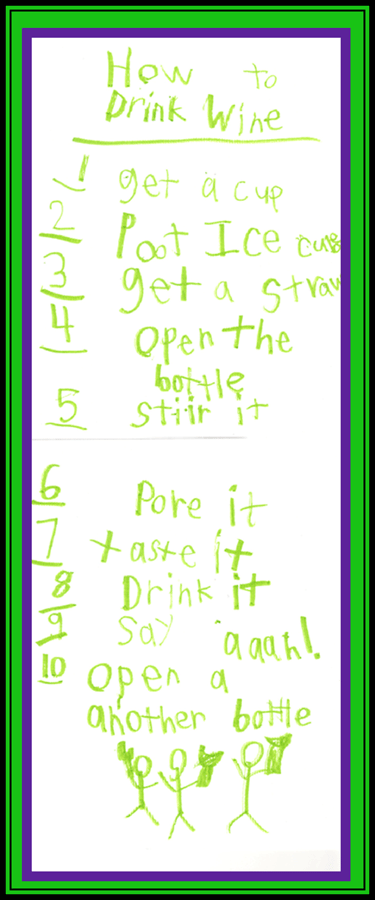 How to
Drink Wine
1 get a cup
2 Poot Ice cubs
3 get a straw
4 open the
bottle
5 stiir it
6 Pore it
7 taste it
8 Drink it
9 Say "aaah!.
10 open a
another bottle